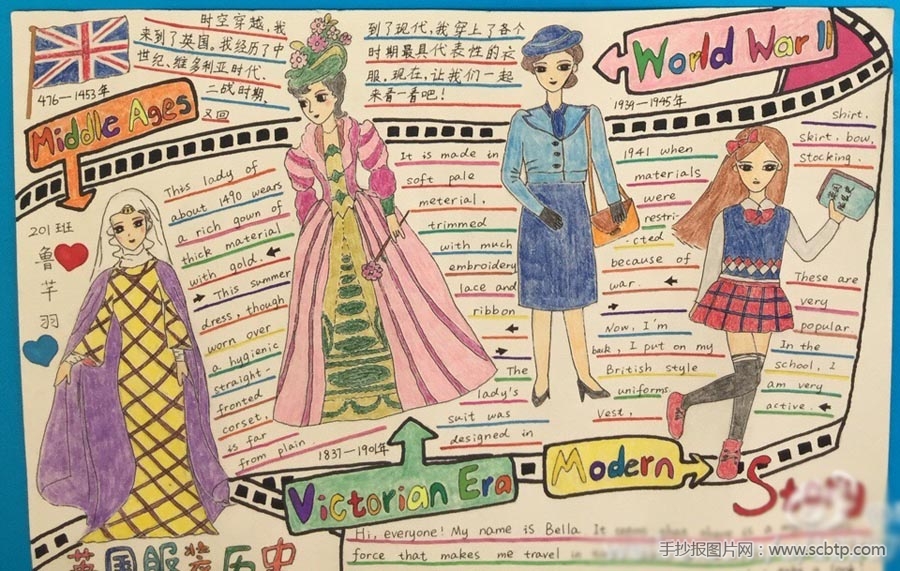 时空穿越,我
来到了英国。我经历了中
世纪、维多利亚时代、
二战时期、
又回
到了现代,我穿上了各个
时期最具代表性的衣
服。现在,让我们一起
来看一看吧!
476—1453年
Middle Ages
201班
鲁
芊
羽
This lady of
about 1490 wears
a rich gown of
thick material
with gold.
This summer
dress, though
worn over
a hygienic
straight-
fronted
corset,
is far
from plain.
1837—1901年
Victorian Era
It is made in
soft pale
meterial,
trimmed
with much
embroidery
lace and
ribbon
The
lady's
suit was
designed in
World War II
1939—1945年
1941 when
materials
were
restri-
cted
because of
war.
Now, I'm
back, I put on my
British style
uniforms
Vest,
Modern
shirt,
skirt, bow,
stocking.
These are
very
popular
In the
school, I
am very
active.
Story
英国服装历史
Hi, everyone! My name is Bella. It
force that makes me travel in
手抄报图片网:www.scbtp.com